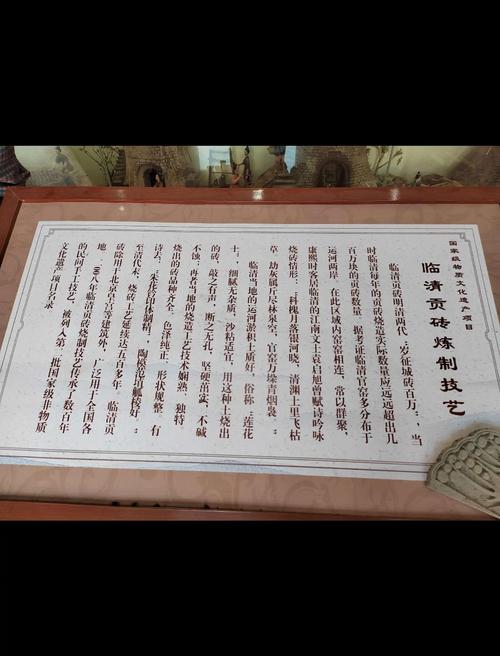 国家级物质文化遗产项目
临清贡砖炼制技艺
临清贡砖明清两代“岁征城砖百万”，当
时临清每年的贡砖烧造实际数量应远远超出几
百万块的贡砖数量。据考证临清官窑多分布于
运河两岸，在此区域内窑窑相连，常以群聚，
康熙时客居临清的江南文士袁启旭曾赋诗吟咏
烧砖情形：“科槐月落银河晓，清渊土里飞枯
草，劫灰厲斤尽林泉空，官窑万垛青烟袅。
临清当地的运河淤积土质好，俗称“莲花
土”，细腻无杂质，沙粘适宜，用这种土烧出
的砖，敲之有声，断之无孔，坚硬茁实，不碱
不蚀；再者当地的烧造工艺技术娴熟，独特
烧出的砖品种齐全，色泽纯正，形状规整。有
诗去：“朱花钤印体制精，陶模范埴觚棱好”。
至清代末，烧砖工艺延续达五百多年，临清贡
砖除用于北京皇宫等建筑外，广泛用于全国各
地。二〇〇八年临清贡砖烧制技艺传承了数百年
的民间手工技艺，被列入第二批国家级非物质
文化遗产项目名录